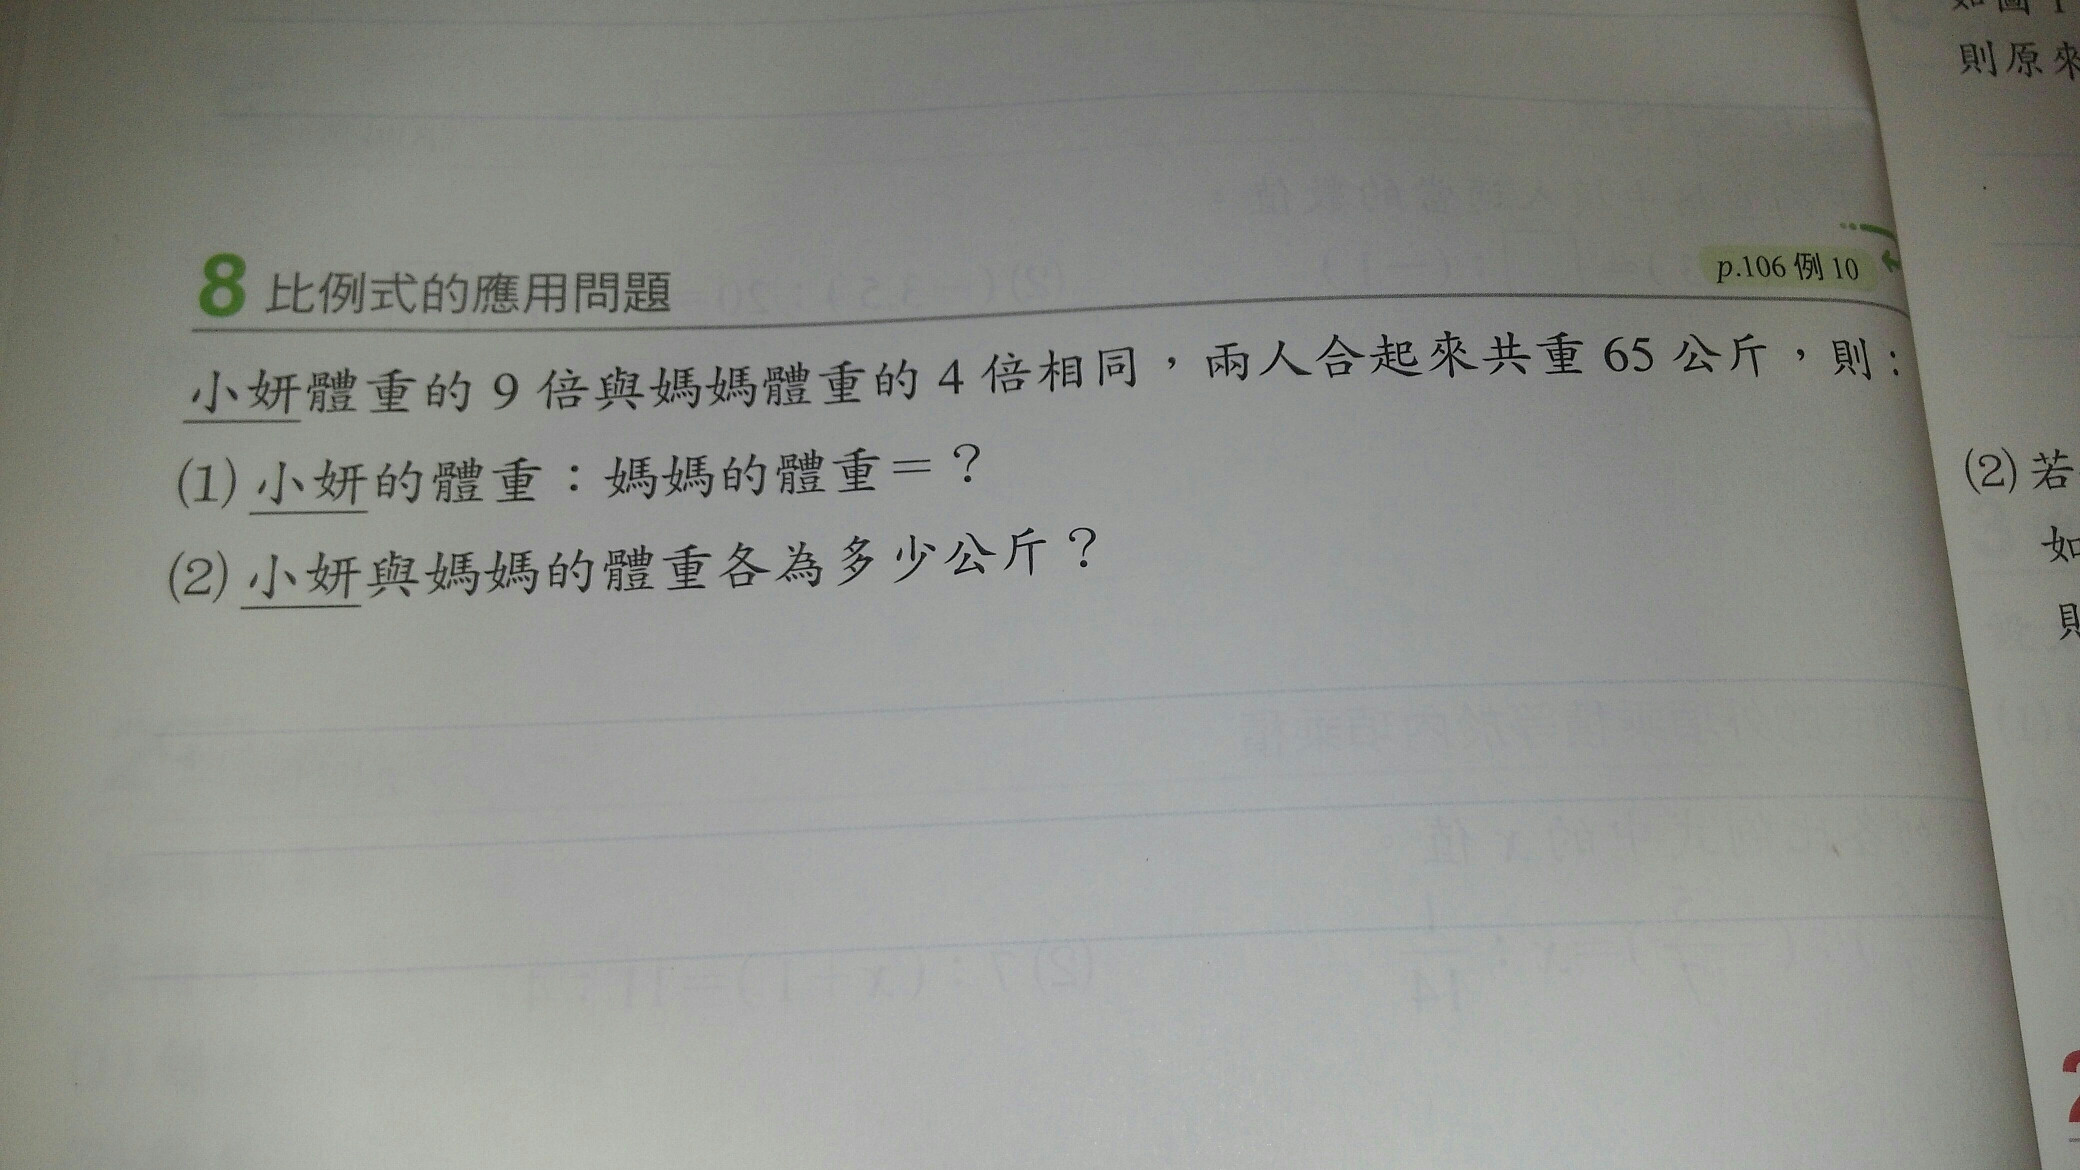 則原來
8 比例式的應用問題
p.106 例 10
小妍體重的 9 倍與媽媽體重的 4 倍相同，兩人合起來共重 65 公斤，則：
(1) 小妍的體重：媽媽的體重＝？
(2) 小妍與媽媽的體重各為多少公斤？
(2) 若
如